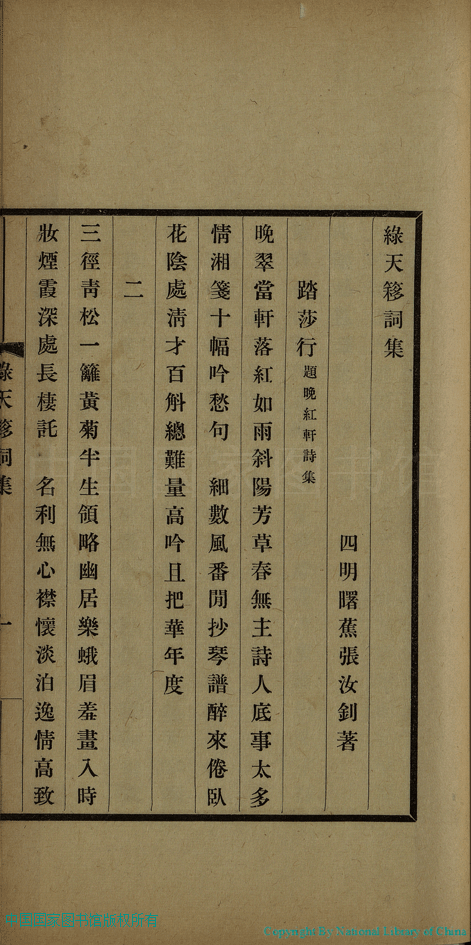 綠天簃詞集
四明曙蕉張汝釗著
踏莎行題晚紅軒詩集
晚翠當軒落紅如雨斜陽芳草春無主詩人底事太多
情湘箋十幅吟愁句　細數風番閒抄琴譜醉來倦臥
花陰處淸才百斛總難量高吟且把華年度
二
三徑靑松一籬黃菊半生領略幽居樂蛾眉羞畫入時
妝煙霞深處長棲託　名利無心襟懷淡泊逸情高致
綠天簃詞集　一
中国国家图书馆版权所有
Copyright By National Library of China